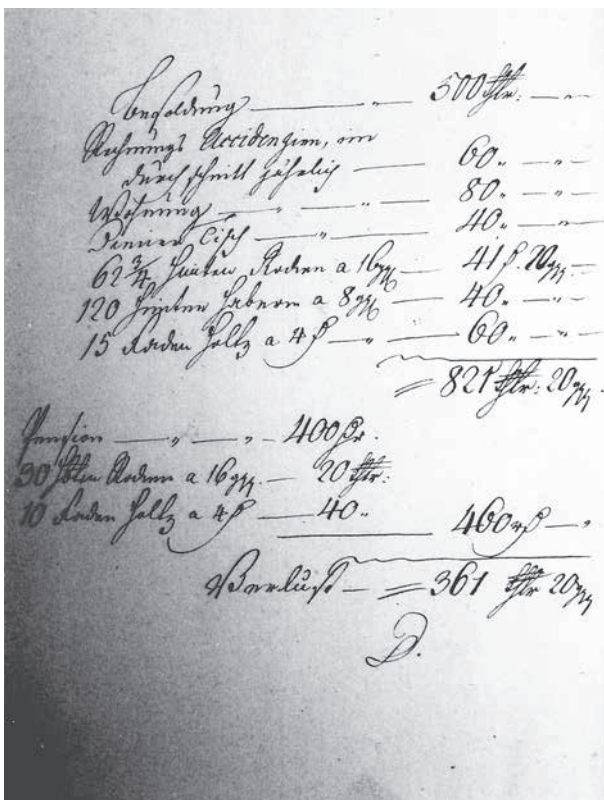 Besoldung — " — 500 Thlr. — "
Rechnungs Accidenzien, im
durchschnitt jährlich — 60 " — "
Wohnung — " — " — 80 " — "
Diener Tisch — " — 40 " — "
62 3/4 Himten Rocken a 16 ggr — 41 f. 20 ggr —
120 Himten Habern a 8 ggr — 40 " — "
15 Faden Holtz a 4 f — " — 60 " — "
= 821 Thlr: 20 ggr
Pension — " — " — 400 Thr.
30 Hbten Rocken a 16 ggr. — 20 Thlr:
10 Faden Holtz a 4 f — 40 " 460 rf — "
Verlust — = 361 Thlr 20 ggr
D.